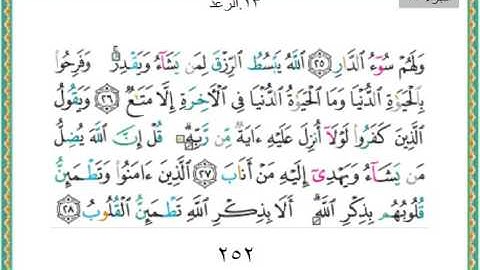 ١٣.الرعد
وَلَهُمْ سُوٓءُ ٱلدَّارِ ٢٥ ٱللَّهُ يَبْسُطُ ٱلرِّزْقَ لِمَن يَشَآءُ وَيَقْدِرُ ۚ وَفَرِحُوا۟
بِٱلْحَيَوٰةِ ٱلدُّنْيَا وَمَا ٱلْحَيَوٰةُ ٱلدُّنْيَا فِى ٱلْـَٔاخِرَةِ إِلَّا مَتَـٰعٌ ٢٦ وَيَقُولُ
ٱلَّذِينَ كَفَرُوا۟ لَوْلَآ أُنزِلَ عَلَيْهِ ءَايَةٌ مِّن رَّبِّهِۦ ۗ قُلْ إِنَّ ٱللَّهَ يُضِلُّ
مَن يَشَآءُ وَيَهْدِىٓ إِلَيْهِ مَنْ أَنَابَ ٢٧ ٱلَّذِينَ ءَامَنُوا۟ وَتَطْمَئِنُّ
قُلُوبُهُم بِذِكْرِ ٱللَّهِ ۗ أَلَا بِذِكْرِ ٱللَّهِ تَطْمَئِنُّ ٱلْقُلُوبُ ٢٨
٢٥٢